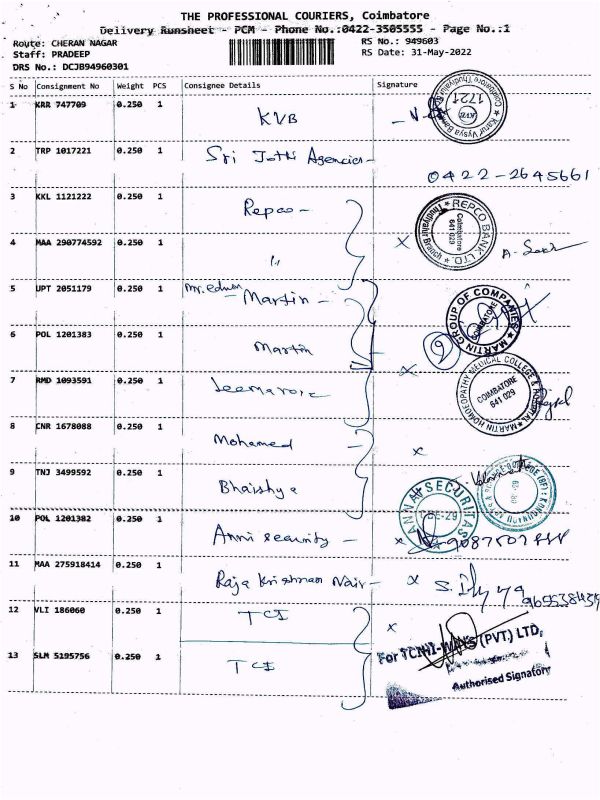 THE PROFESSIONAL COURIERS, Coimbatore
Delivery Runsheet - PCM - Phone No.:0422-3505555 - Page No.:1
Route: CHERAN NAGAR
Staff: PRADEEP
DRS No.: DCJB94960301
RS No.: 949603
RS Date: 31-May-2022
S No Consignment No Weight PCS Consignee Details Signature
1 KRR 747709 0.250 1 KVB
Karur Vysya Bank 1721 KVB Coimbatore Thudiyalur
2 TRP 1017221 0.250 1 Sri Jothi Agencies -
0422-2645661
3 KKL 1121222 0.250 1 Repco -
REPCO BANK LTD. Thudiyalur Branch Coimbatore 641 029
4 MAA 290774592 0.250 1 "
5 UPT 2051179 0.250 1 Martin -
MARTIN GROUP OF COMPANIES COIMBATORE
6 POL 1201383 0.250 1 Martin
7 RMD 1093591 0.250 1
MARTIN HOMOEOPATHY MEDICAL COLLEGE & HOSPITAL COIMBATORE 641 029
8 CNR 1678088 0.250 1 Mohamed
9 TNJ 3499592 0.250 1 Bhaishya
10 POL 1201382 0.250 1 Anni security -
11 MAA 275918414 0.250 1 Raja Krishnan Nair -
12 VLI 186060 0.250 1 TCI
13 SLM 5195756 0.250 1 TCI
Authorised Signatory